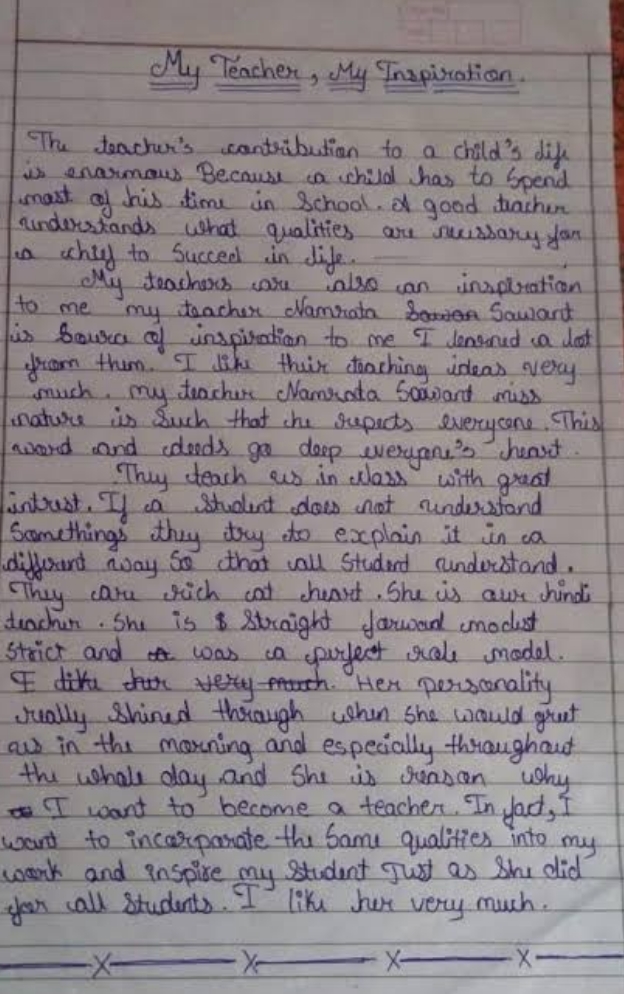 My Teacher, My Inspiration.
The teacher's contribution to a child's life
is enarmous Because a child has to Spend
most of his time in School. A good teacher
understands what qualities are neissary for
a chief to Succed in life.
My teachers are also an inspiration
to me my teacher Namrata Sawant
is Source of inspiration to me I learned a lot
from them. I like their teaching ideas very
much. my teacher Namrata Sawant miss
nature is Such that he repects everyone. This
word and deeds go deep everyone's heart.
They teach us in class with great
intrest. If a student does not understand
Somethings they try to explain it in a
different way So that all Student understand.
They are rich at heart. She is our hindi
teacher. She is Straight forward modest
Strict and was a perfect role model.
I like her very much. Her personality
really Shined through when she would greet
us in the morning and especially throughout
the whole day and She is reason why
I want to become a teacher. In fact, I
want to incorporate the Same qualities into my
work and inspire my Student Just as She did
for all Students. I like her very much.